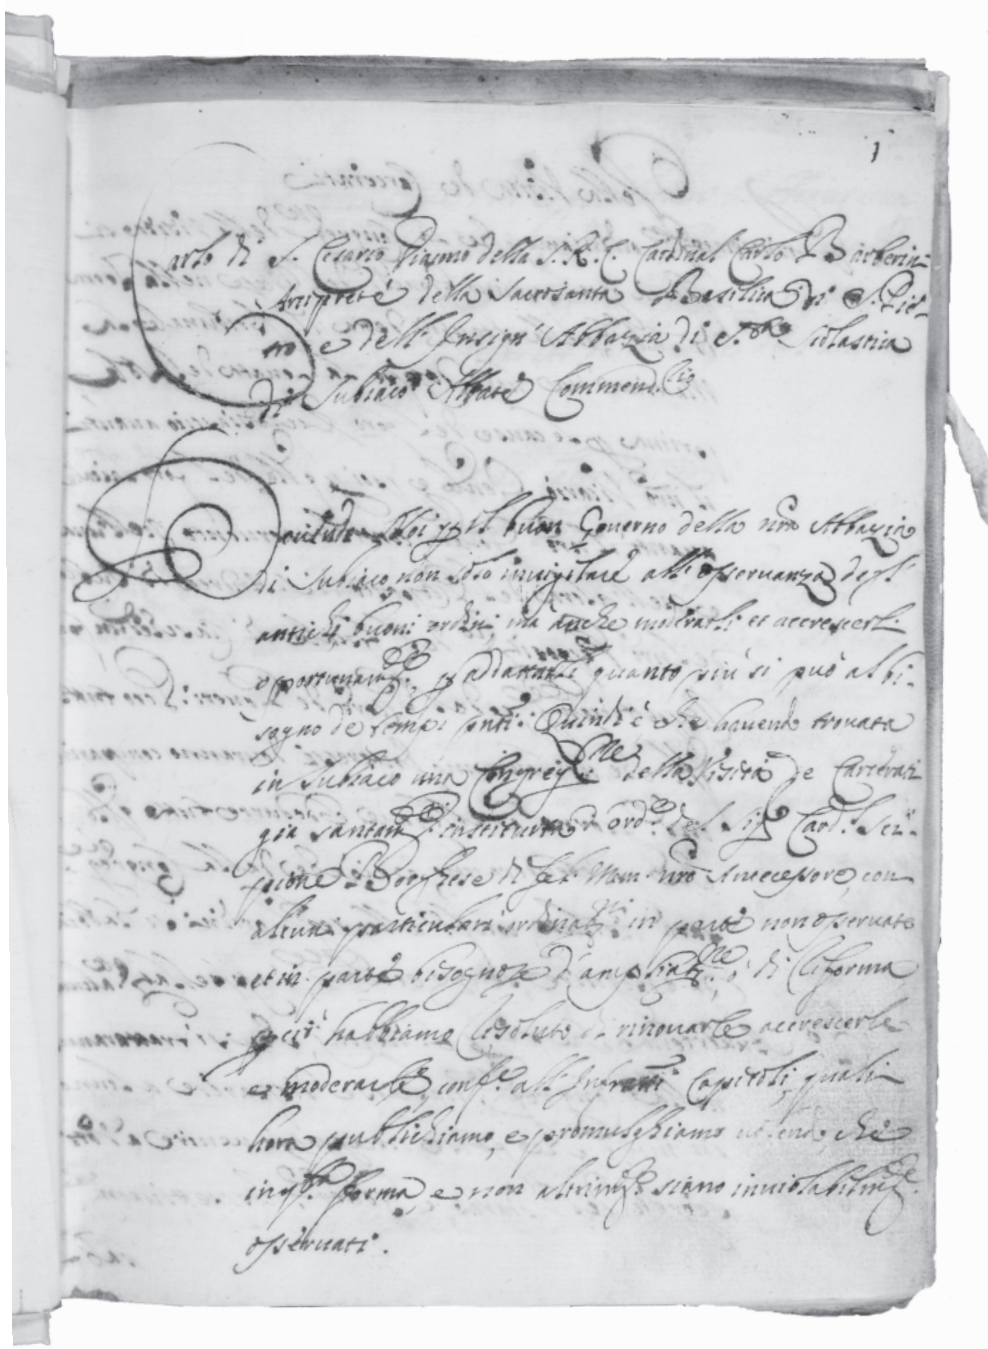 1
Carlo di S. Cesareo Diacono della S. R. C. Cardinal Carlo Barberin
Arciprete della Sacrosanta Basilica di S. Pie-
tro e dell' Insign' Abbazia di S.ta Scolastica
di Subiaco Abbate Commend.rio
il buon Governo della nra Abbazia
di Subiaco non solo invigilare all' osservanza degl'
antichi buoni ordini, ma anche moderarli et accrescerli
opportunam.te, addattarli quanto più si può al bi-
sogno de tempi pnti: Quindi è che havendo trovata
in Subiaco una Congreg.ne della Visita de Carcerati
già santam.te instituita ord.e del Sig.r Card.l Sci-
pione Borghese di fel: Mem: nro Antecessore, con
alcuni particolari ordinaz.ni in parte non osservate
et in parte bisognose d'ampliaz.ne, ò di riforma
perciò habbiamo resoluto di rinovarle accrescerle
e moderarle, conf.e all' Infratti Capitoli, quali
hora publichiamo, e promulghiamo volendo, che
in q.ta forma, e non altrim.te siano inviolabilm.te
osservati.